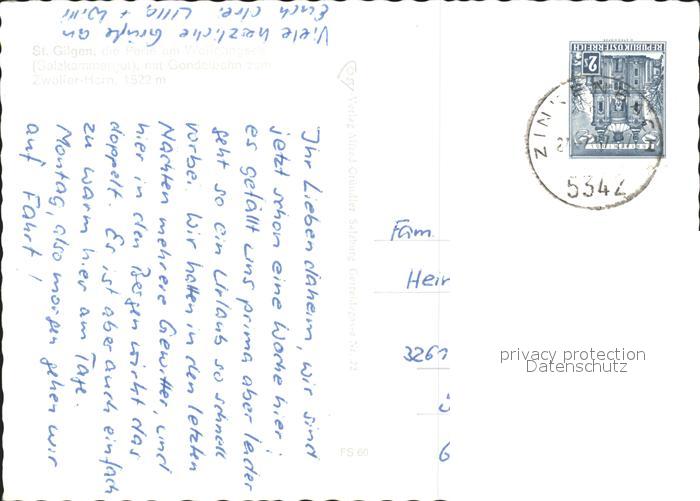 St. Gilgen, die Perle am Wolfgangsee
(Salzkammergut), mit Gondelbahn zum
Zwölfer-Horn, 1522 m
Ihr Lieben daheim, wir sind
jetzt schon eine Woche hier;
es gefällt uns prima aber leider
geht so ein Urlaub so schnell
vorbei. Wir hatten in den letzten
Nächten mehrere Gewitter, und
hier in den Bergen wirkt das
doppelt. Es ist aber auch einfach
zu warm hier am Tage.
Montag, also morgen gehen wir
auf Fahrt!
Viele herzliche Grüße an
Euch alle. Ulla + Willi
Salzburg
FS 60
REPUBLIK ÖSTERREICH
2
S
ZINKENB
5342
Fam.
Hein
3261
privacy protection
Datenschutz